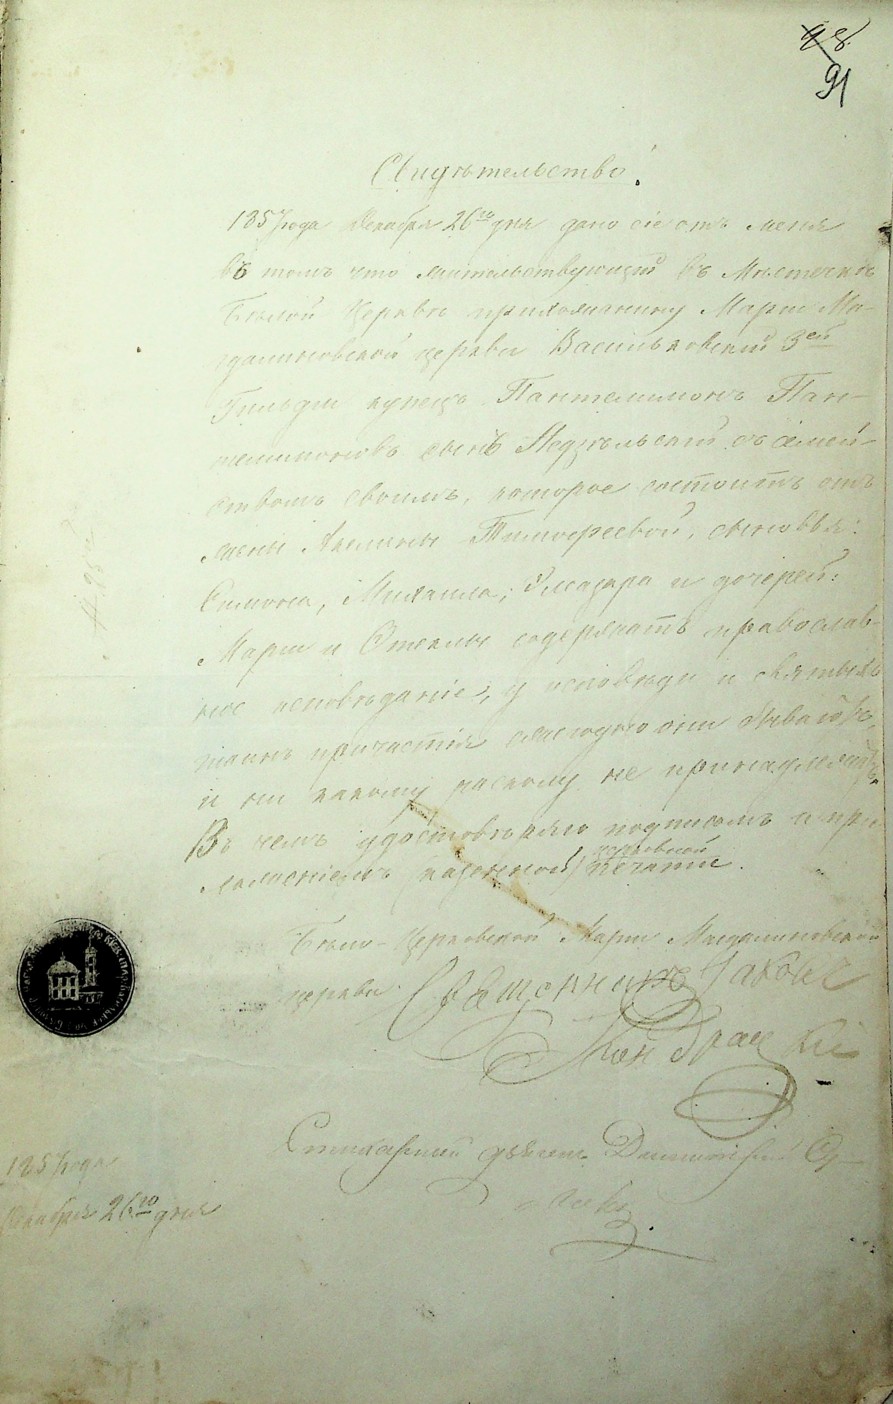 98.
91
Свидѣтельство.
1857 года Декабря 26го дня дано сіе отъ меня
въ томъ что жительствующій въ Мѣстечкѣ
Бѣлой Церквѣ прихожанину Маріи Ма-
гдалиновской церкви Васильковскій 3ей
Гильдіи купецъ Пантелимонъ Пан-
телимоновъ сынъ Недзѣльскій съ семей-
ствомъ своимъ, которое состоитъ отъ
жены Акилины Тимофеевой, сыновья:
Симона, Михаила, и дочерей:
Маріи и Феклы содержатъ православ-
ное исповѣданіе, у исповѣди и святыхъ
таинъ причастія ежегодно они бываютъ,
и ни какому расколу не принадлежатъ,
Въ чемъ удостовѣряю подписомъ и при-
ложеніемъ (казенной) церковной печати.
Бѣло-Церковской Маріи Магдалиновской
церкви Священникъ Іаковъ
Кондрацкій
дьячекъ
1857 года
Декабря 26го дня